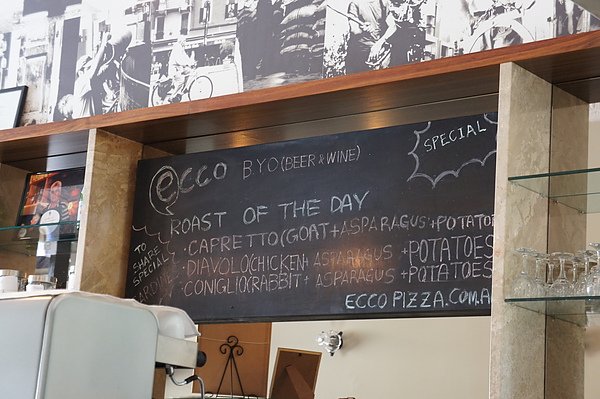 ecco B.Y.O (BEER & WINE)
SPECIAL
ROAST OF THE DAY
TO SHARE SPECIAL
• CAPRETTO (GOAT + ASPARAGUS + POTATO
• DIAVOLO (CHICKEN + ASPARAGUS + POTATOES
• CONIGLIO (RABBIT + ASPARAGUS + POTATOES
ECCO PIZZA.COM.A